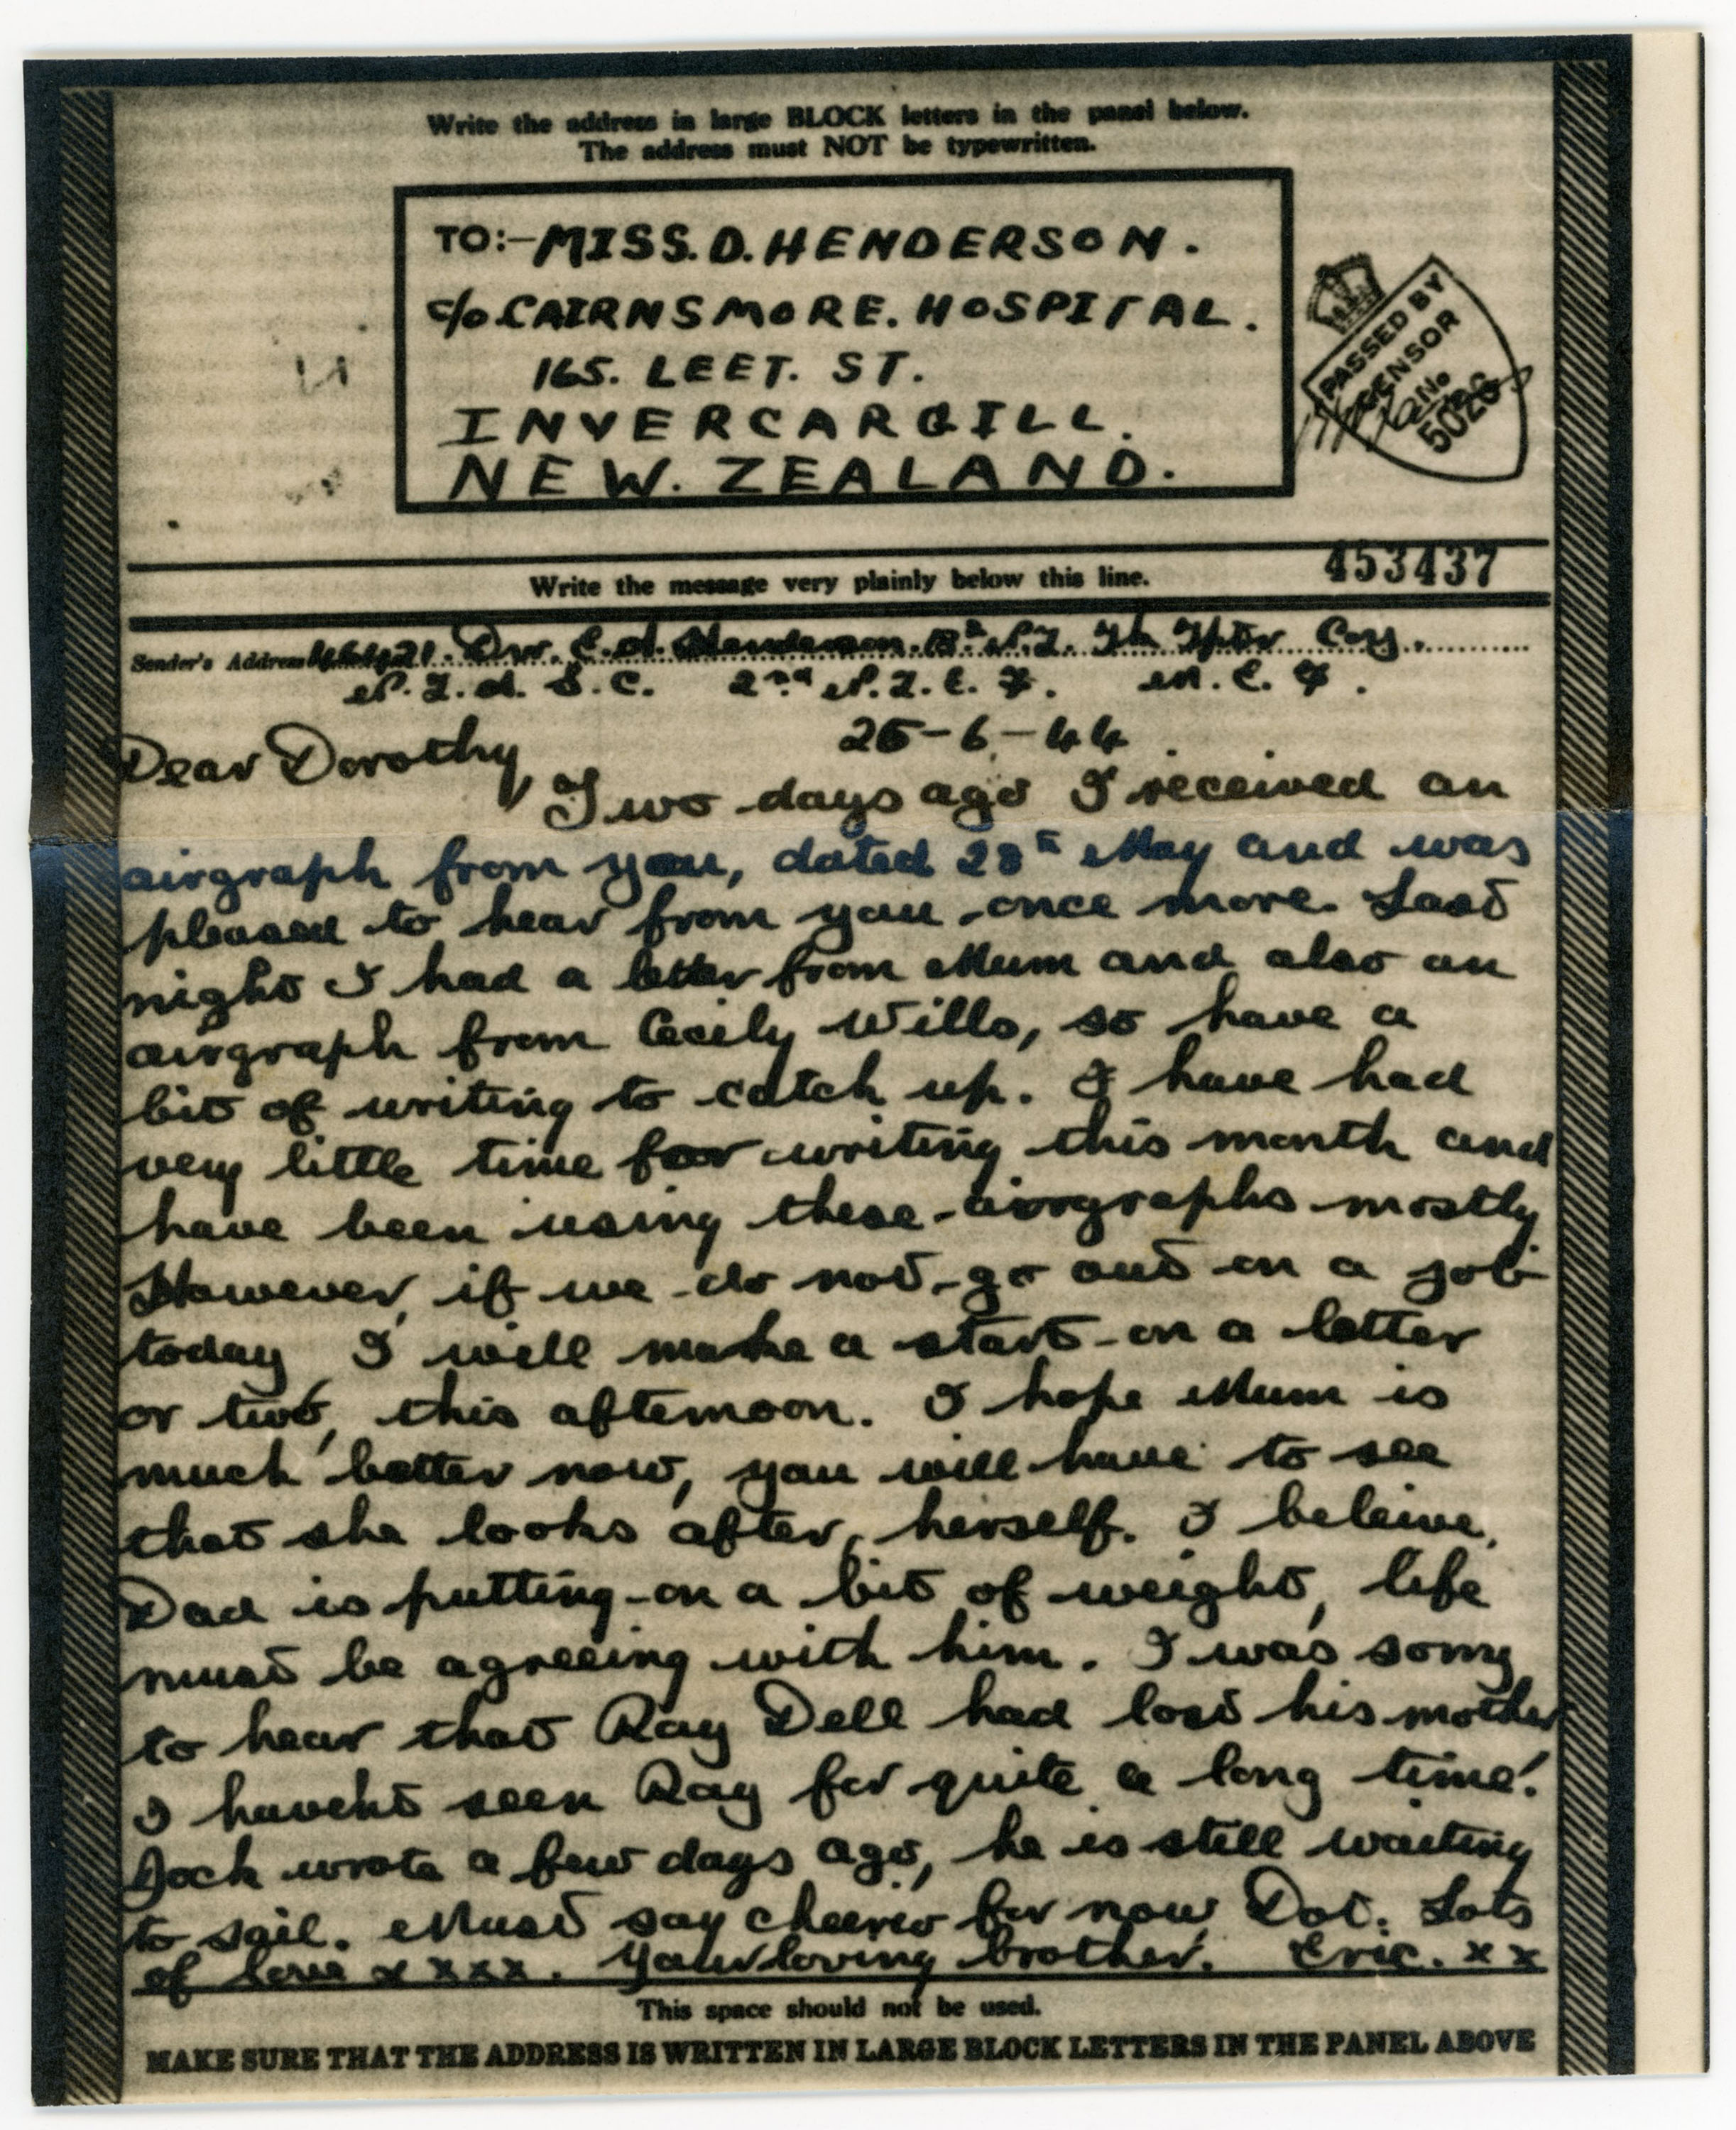 Write the address in large BLOCK letters in the panel below.
The address must NOT be typewritten.
TO:- MISS. D. HENDERSON.
c/o CAIRNSMORE. HOSPITAL.
165. LEET. ST.
INVERCARGILL.
NEW. ZEALAND.
PASSED BY
CENSOR
No
5026
453437
Write the message very plainly below this line.
Sender's Address Dvr. E. A. Henderson. N.Z. Coy.
N.Z.A.S.C. 2nd N.Z.E.F. M.E.F.
25-6-44.
Dear Dorothy,
Two days ago I received an
airgraph from you, dated 28th May and was
pleased to hear from you once more. Last
night I had a letter from Mum and also an
airgraph from Cecily Wills, so have a
bit of writing to catch up. I have had
very little time for writing this month and
have been using these airgraphs mostly
However, if we do not go out on a job
today I will make a start on a letter
or two, this afternoon. I hope Mum is
much better now, you will have to see
that she looks after, herself. I beleive,
Dad is putting on a bit of weight, life
must be agreeing with him. I was sorry
to hear that Ray Dell had lost his mother
I havent seen Ray for quite a long time!
Jack wrote a few days ago, he is still waiting
to sail. Must say cheerio for now Dot. Lots
of love x x x x. Your loving brother. Eric. x x
This space should not be used.
MAKE SURE THAT THE ADDRESS IS WRITTEN IN LARGE BLOCK LETTERS IN THE PANEL ABOVE